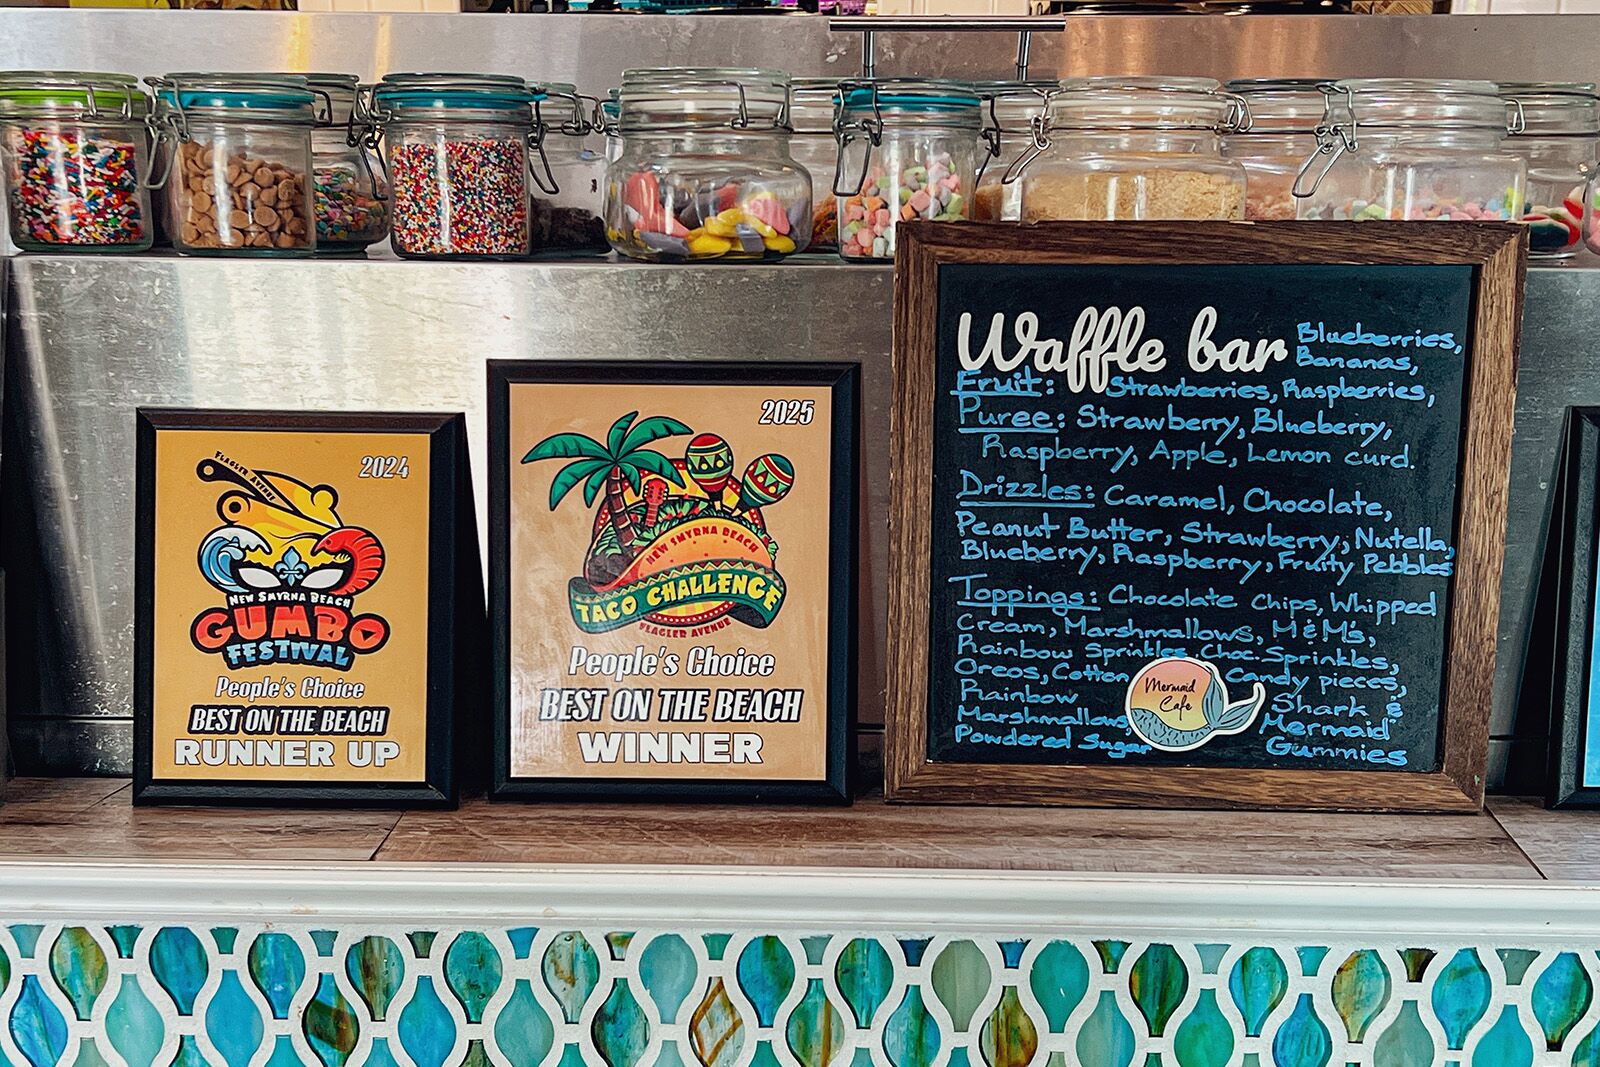 FLAGLER AVENUE
2024
NEW SMYRNA BEACH
GUMBO
FESTIVAL
People's Choice
BEST ON THE BEACH
RUNNER UP
2025
NEW SMYRNA BEACH
TACO CHALLENGE
FLAGLER AVENUE
People's Choice
BEST ON THE BEACH
WINNER
Waffle bar
Fruit: Blueberries,
Bananas,
Strawberries, Raspberries,
Puree: Strawberry, Blueberry,
Raspberry, Apple, Lemon curd.
Drizzles: Caramel, Chocolate,
Peanut Butter, Strawberry, Nutella,
Blueberry, Raspberry, Fruity Pebbles
Toppings: Chocolate Chips, Whipped
Cream, Marshmallows, M&M's,
Rainbow Sprinkles, Choc. Sprinkles,
Oreos, Cotton Candy pieces,
Rainbow
Marshmallows,
Powdered Sugar
Shark &
Mermaid
Gummies
Mermaid
Cafe